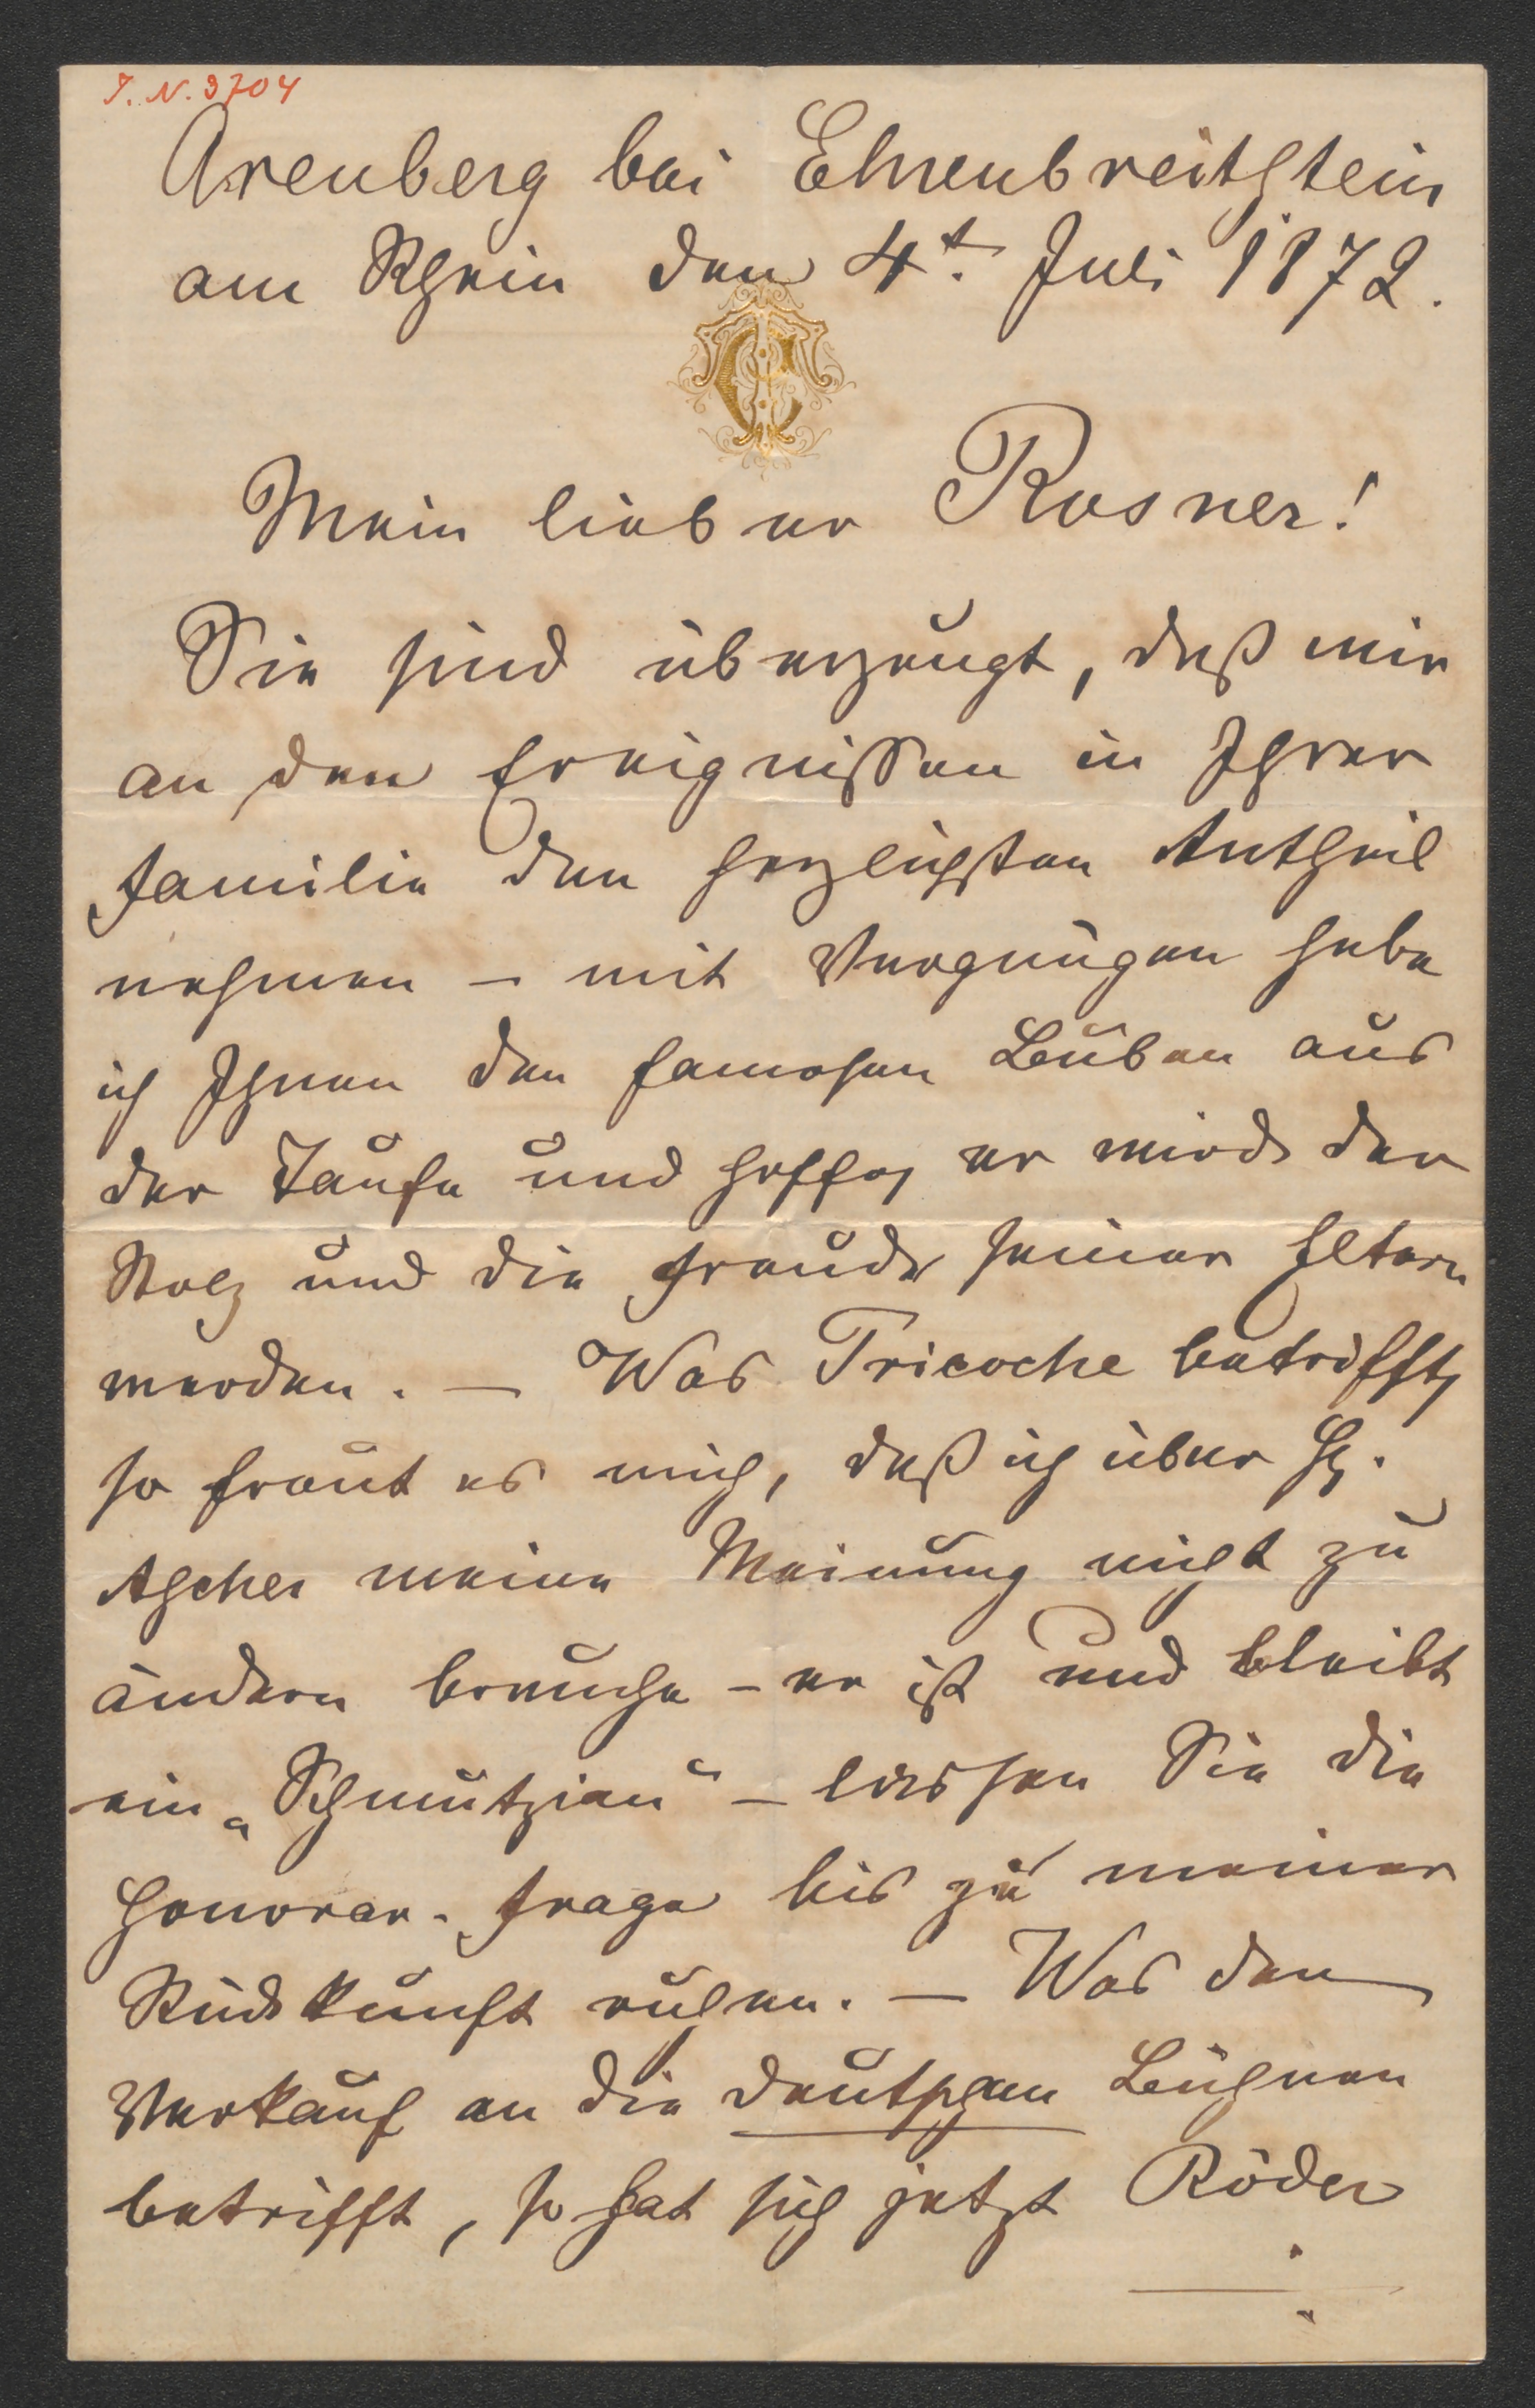 I. N. 3704
Arenberg bei Ehrenbreitstein
am Rhein den 4t. Juli 1872.
Mein lieber Rosner!
Sie sind überzeugt, daß wir
an den Ereignissen in Ihrer
Familie den herzlichsten Antheil
nehmen – mit Vergnügen hebe
ich Ihnen den famosen Buben aus
der Taufe und hoffe, er wird der
Stolz und die Freude seiner Eltern
werden. – Was Tricoche betrifft,
so freut es mich, daß ich über H.
Ascher meine Meinung nicht zu
ändern brauche – er ist und bleibt
ein „Schmutzian“ – lassen Sie die
Honorar-Frage bis zu meiner
Rückkunft ruhen. – Was den
Verkauf an die deutschen Bühnen
betrifft, so hat sich jetzt Röder